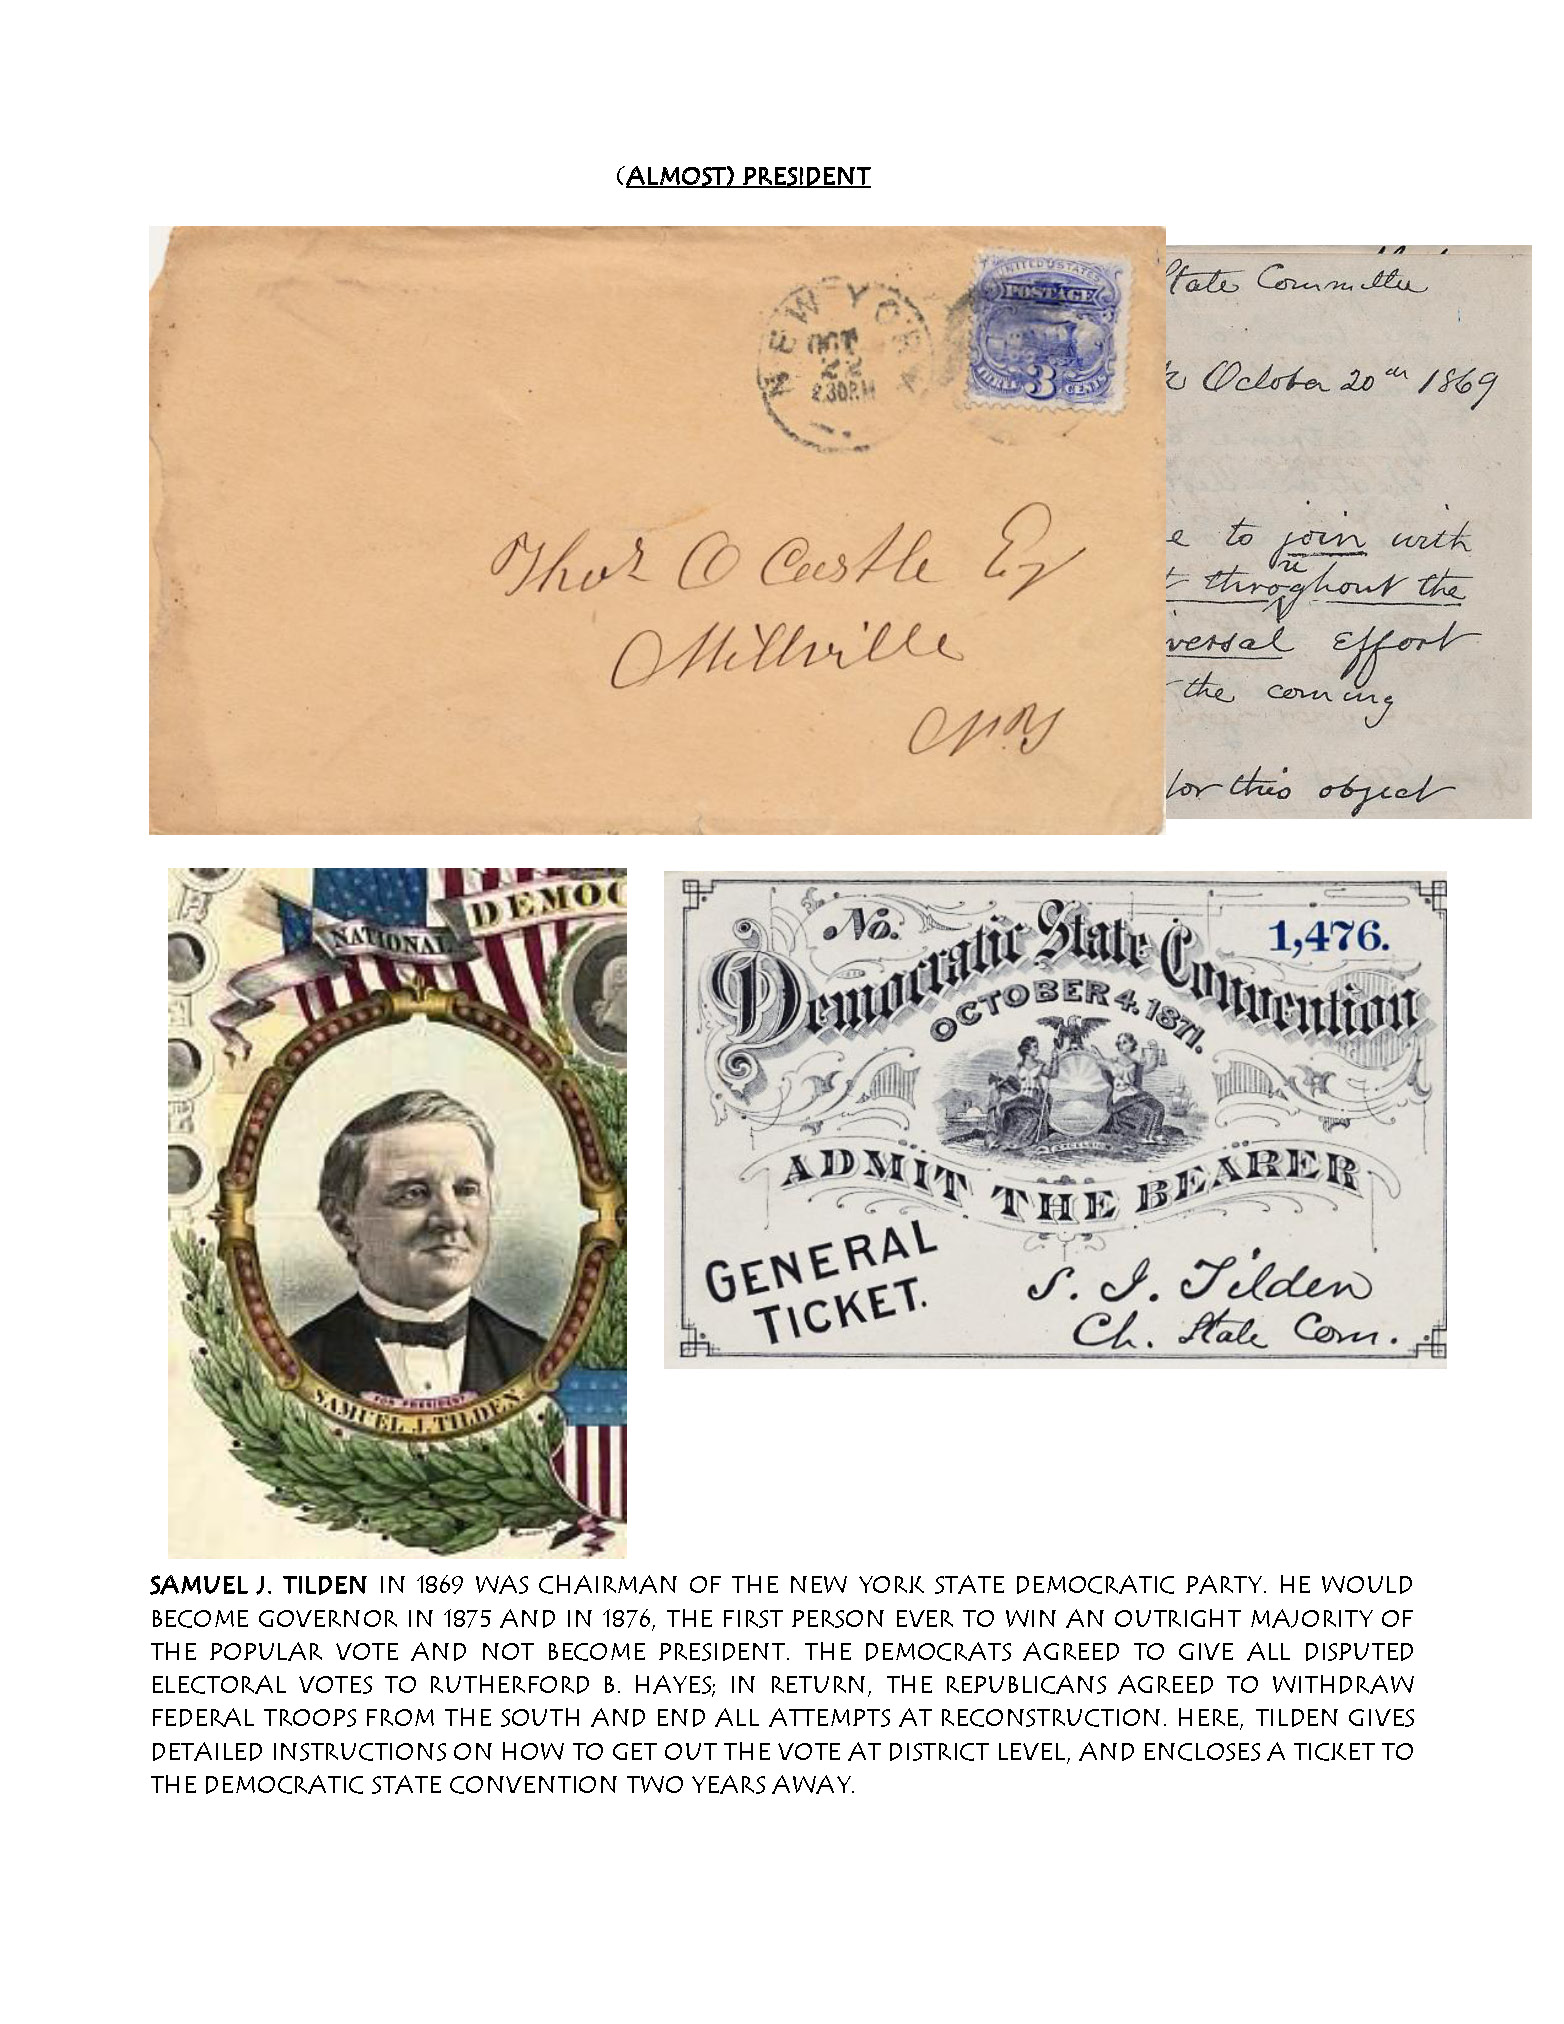 (ALMOST) PRESIDENT
NEW YORK
OCT
22
2.30P.M
UNITED STATES
POSTAGE
3
CENTS
Thos O Castle Esq
Millville
N.Y
State Committee
October 20th 1869
e to join with
t throughout the
versal effort
the coming
for this object
NATIONAL
DEMOC
FOR PRESIDENT
SAMUEL J. TILDEN
No. 1,476.
Democratic State Convention
OCTOBER 4, 1871.
EXCELSIOR
ADMIT THE BEARER
GENERAL
TICKET.
S. J. Tilden
Ch. State Com.
SAMUEL J. TILDEN IN 1869 WAS CHAIRMAN OF THE NEW YORK STATE DEMOCRATIC PARTY. HE WOULD
BECOME GOVERNOR IN 1875 AND IN 1876, THE FIRST PERSON EVER TO WIN AN OUTRIGHT MAJORITY OF
THE POPULAR VOTE AND NOT BECOME PRESIDENT. THE DEMOCRATS AGREED TO GIVE ALL DISPUTED
ELECTORAL VOTES TO RUTHERFORD B. HAYES; IN RETURN, THE REPUBLICANS AGREED TO WITHDRAW
FEDERAL TROOPS FROM THE SOUTH AND END ALL ATTEMPTS AT RECONSTRUCTION. HERE, TILDEN GIVES
DETAILED INSTRUCTIONS ON HOW TO GET OUT THE VOTE AT DISTRICT LEVEL, AND ENCLOSES A TICKET TO
THE DEMOCRATIC STATE CONVENTION TWO YEARS AWAY.